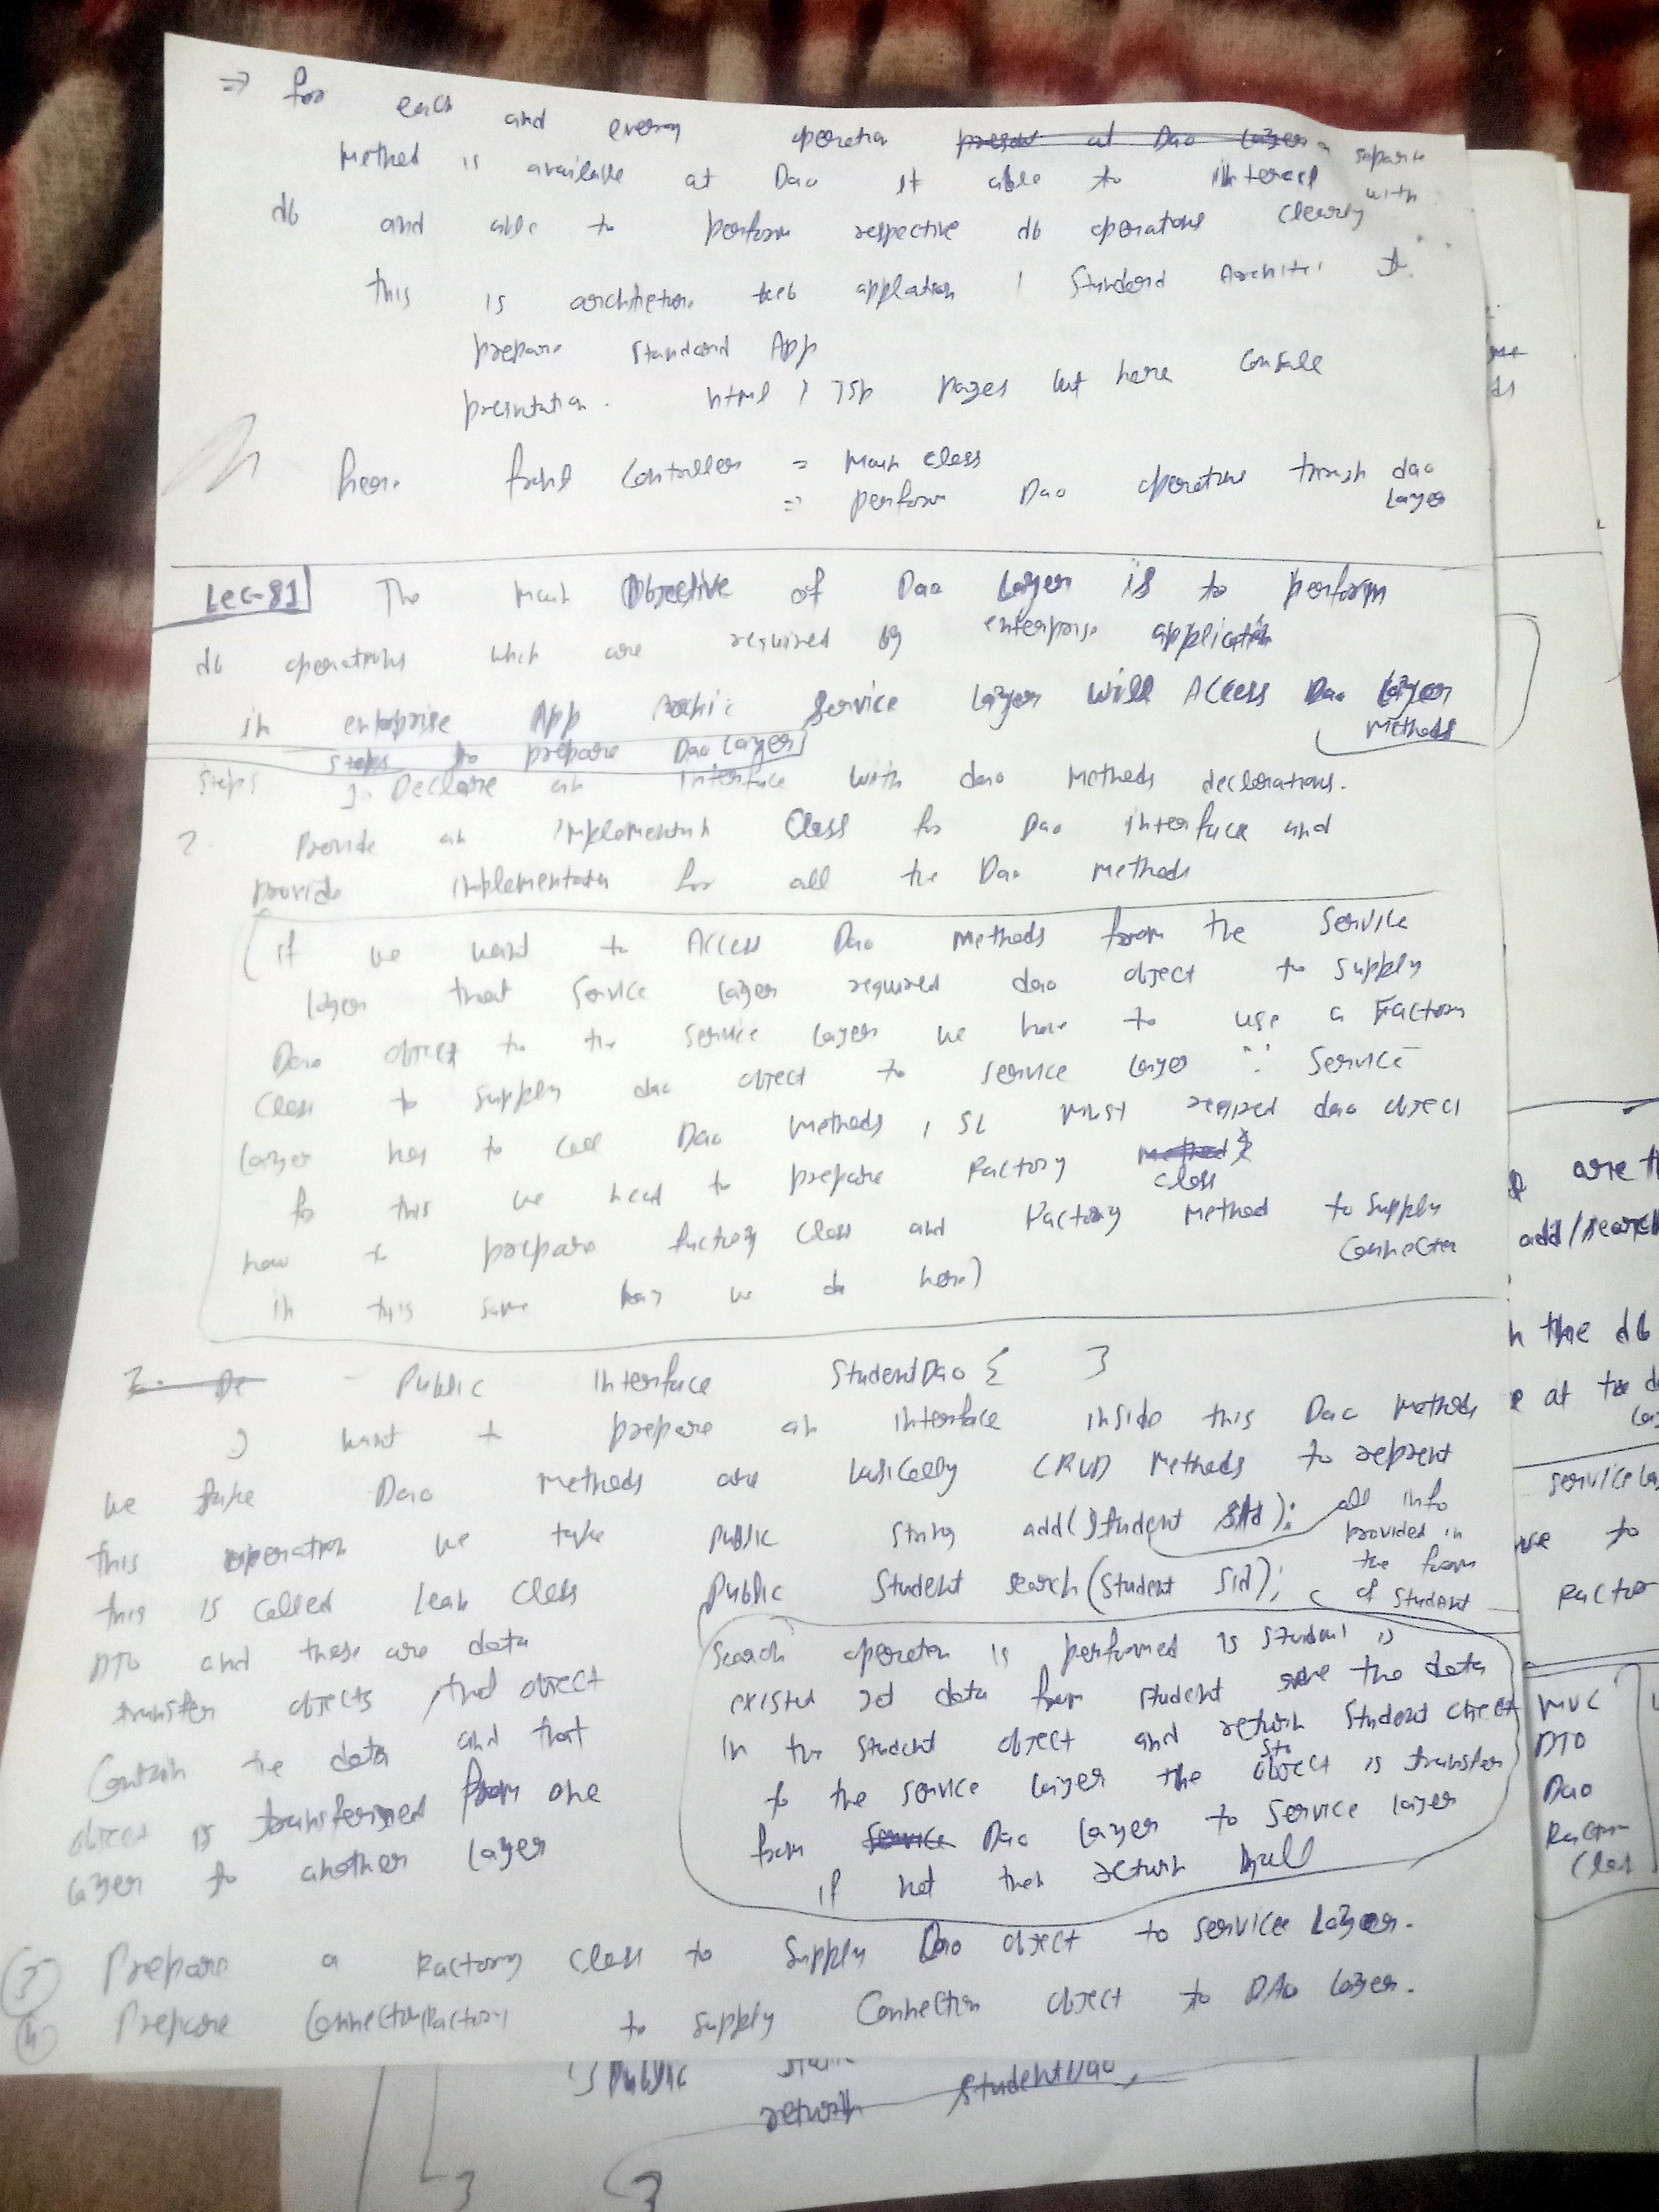 => for each and every operation present at Dao layer a separate
Method is available at Dao it able to interact with
db and able to perform respective db operations clearly
this is architecture web application / Standard Archite
prepare standard App
presntation. html / JSP pages but here console
here front Controller = Main class
= perform Dao operations through dao
layer
Lec-81 The main Objective of Dao Layer is to perform
db operations which are required by enterprise application
in enterprise App Archic Service layer will Access Dao layer
Methods
steps to prepare Dao Layer
steps 1. Declare an interface with dao Methods declarations.
2. Provide an implementatn Class for Dao interface and
provide implementation for all the Dao methods
(if we want to Access Dao methods from the service
layer that service layer required dao object to supply
Dao object to the service layer we have to use a Factory
Class to supply dao object to service layer ∵ Service
layer has to call Dao methods, SL must required dao object
for this we need to prepare Factory method
class
how to prepare factory class and Factory Method to supply
Connection
in this same way we do here)
- Public interface StudentDao { }
I want to prepare an interface inside this Dao methods
we take Dao methods are basically CRUD Methods to reprent
this operation we take public String add(Student std); all info
provided in
the form
of student
this is called bean class public Student search(Student sid);
DTO and these are data
transfer objects, that object
Contain the data and that
object is transferred from one
layer to another layer
Search operation is performed is student is
existed get data from student save the data
in the student object and return student object
to the service layer the std object is transfer
from service Dao layer to service layer
if not then return null
(3) Prepare a Factory class to supply Dao object to service Layer.
(4) Prepare ConnectionFactory to supply Connection object to DAO Layer.
public
return StudentDao;
}
}
are th
add/search
h the db
e at the d
service la
to
Factor
MVC
DTO
Dao
Factory
Class